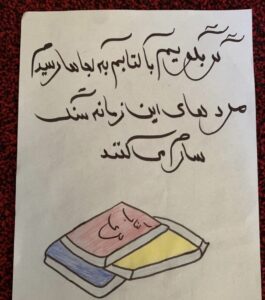 گر بگویم با کتابم به کجاها رسیدم
مردهای این زمانه سنگ
سارم می کنند